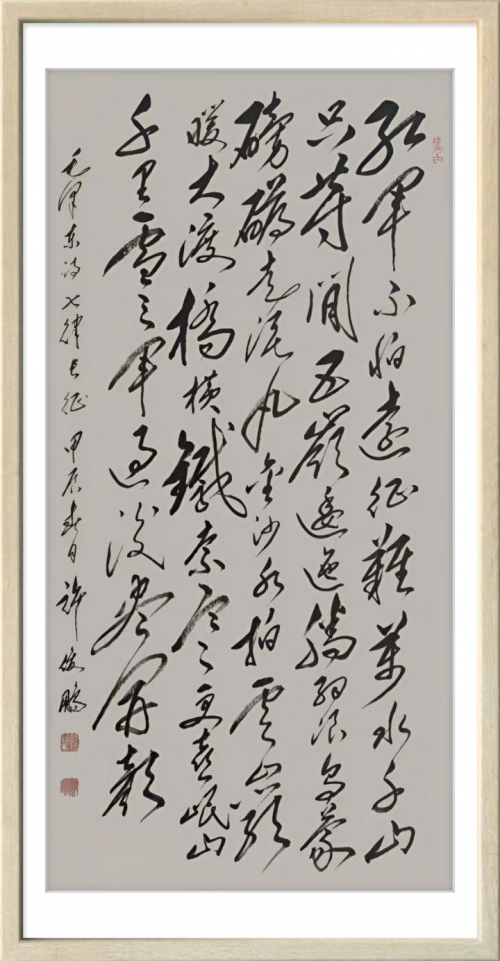 红军不怕遠征難萬水千山
只等閒五嶺逶迤腾细浪乌蒙
磅礴走泥丸金沙水拍云崖
暖大渡橋横鐵索寒更喜岷山
千里雪三军過後尽開颜
毛泽东诗七律长征甲辰春日許俊鹏